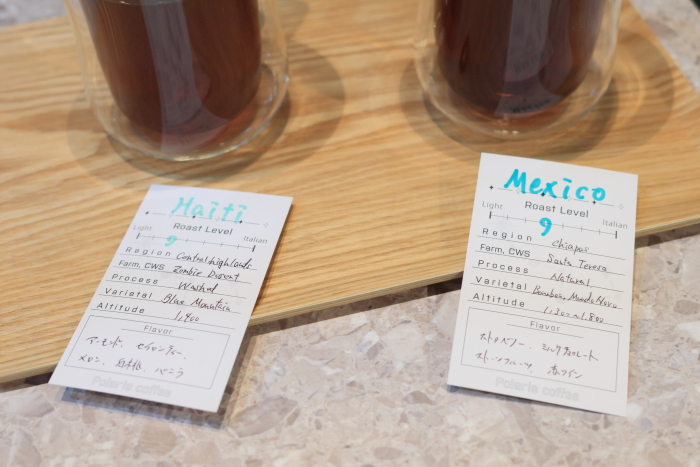 Haiti
Roast Level
Light Italian
9
Region Central highlands
Farm, CWS Zombie Desert
Process Washed
Varietal Blue Mountain
Altitude 1,400
Flavor
アーモンド、セイロンティー、
メロン、白桃、バニラ
Polaris coffee
Mexico
Roast Level
Light Italian
9
Region Chiapas
Farm, CWS Santa Teresa
Process Natural
Varietal Bourbon, Mundo Novo
Altitude 1,300~1,800
Flavor
ストロベリー、ミルクチョコレート
ストーンフルーツ、赤ワイン
Polaris coffee